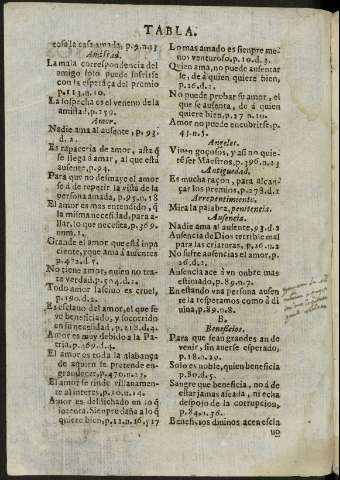 TABLA.
cosa la casa amada, p.9.n.13
Amistad.
La mala correspondencia del
amigo solo puede sufrirse
con la esperãça del premio
p.113.n.10.
La sospecha es el veneno de la
amistad, p.259.
Amor.
Nadie ama al ausente, p. 93.
d.2.
Es rapaceria de amor, asta q̃
se llega à amar, al que està
ausente, p.94.
Para que no desmaye el amor
se à de repetir la vista de la
persona amada, p.95.n.18
El amor es mas entendido, q̃
la misma necesidad, para a-
llar, lo que necesita, p.369
num.1.
Grande el amor que està inpa
ciente, y que ama à ausentes
p.472.d.5.
No tiene amor, quien no tra-
ta verdad. p.504.d.2.
Todo amor lascivo es cruel,
p.190.d.2.
Es esclavo del amor, el que se
ve beneficiado, y socorrido
en su necesidad, p.218.d.4.
Amor es muy debido à la Pa-
tria. p.369.d.4.
El amor es toda la alabança
de aquien se pretende en-
grandecer, p.470.n.23.
El amor se rinde villanamen-
te al interes, p.10.n.14.
Amor es desdichado en lo q̃
intenta. Sienpre daña a lo q̃
quiere bien, p.11.n.16, y 17
Lo mas amado es sienpre me-
nos venturoso. p.10.d.3.
Quien ama, no puede ausentar
se, de à quien quiere bien,
p.26.d.2.
No puede probar su amor, el
que se ausenta, de à quien
quiere bien. p.27 n.10.
Amor no puede encubrirse, p.
43.n.5.
Angeles.
Viven goçosos, y asi no quie-
rē ser Maestros, p.396.n.23
Antiguedad.
Es mucha raçon, para alcan-
çar los premios, p.278.d.2
Arrepentimiento.
Mira la palabra, penitencia.
Ausencia.
Nadie ama al ausente, 93.d.2
Ausencia de Dios terrible mal
para las criaturas, p.26.n.2
No sufre ausencias el amor. p.
26.d.2.
Ausencia ace à vn onbre mas
estimado, p.89.n.7.
En estando vna persona ausen
te la respetamos como à di
vina, p.89.n.8.
B.
Beneficios.
Para que sean grandes an de
venir, sin averse esperado,
p.18.n.29.
Solo es noble, quien beneficia
p.80.d.5.
Sangre que beneficia, no à de
estar jamas aseada, ni echa
despojo de la corrupcion,
p.84.n.36.
Beneficios divinos acen escla
vo